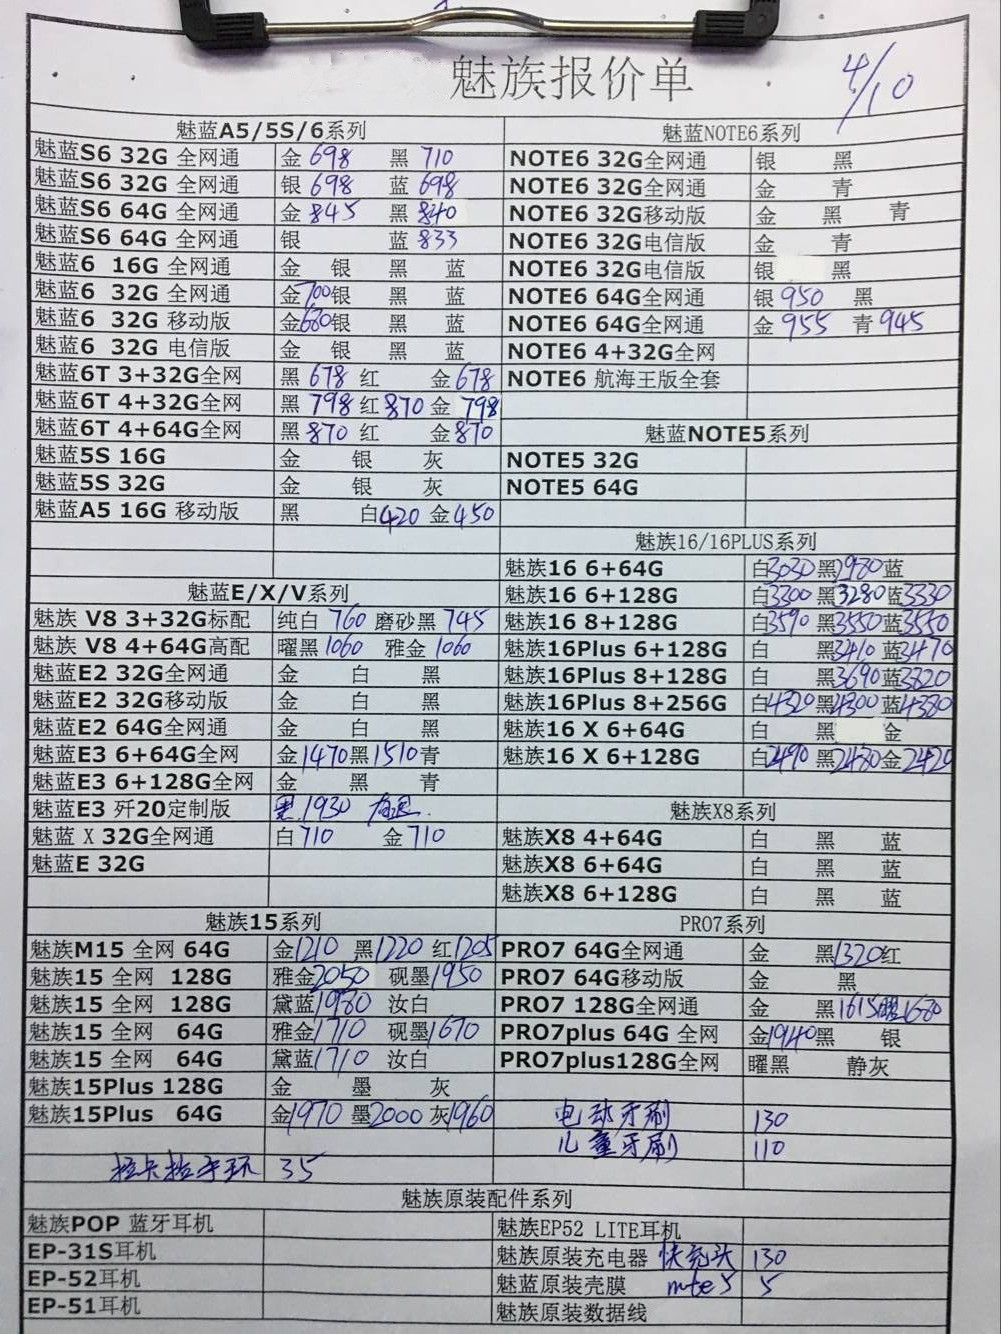 魅族报价单 4/10
魅蓝A5/5S/6系列
魅蓝S6 32G 全网通 金 698 黑 710
魅蓝S6 32G 全网通 银 698 蓝 698
魅蓝S6 64G 全网通 金 845 黑 840
魅蓝S6 64G 全网通 银 蓝 833
魅蓝6 16G 全网通 金 银 黑 蓝
魅蓝6 32G 全网通 金700银 黑 蓝
魅蓝6 32G 移动版 金680银 黑 蓝
魅蓝6 32G 电信版 金 银 黑 蓝
魅蓝6T 3+32G全网 黑 678 红 金 678
魅蓝6T 4+32G全网 黑 798 红 870 金 798
魅蓝6T 4+64G全网 黑 870 红 金 870
魅蓝5S 16G 金 银 灰
魅蓝5S 32G 金 银 灰
魅蓝A5 16G 移动版 黑 白420 金450
魅蓝E/X/V系列
魅族 V8 3+32G标配 纯白 760 磨砂黑 745
魅族 V8 4+64G高配 曜黑 1060 雅金 1060
魅蓝E2 32G全网通 金 白 黑
魅蓝E2 32G移动版 金 白 黑
魅蓝E2 64G全网通 金 白 黑
魅蓝E3 6+64G全网 金1470黑1510青
魅蓝E3 6+128G全网 金 黑 青
魅蓝E3 歼20定制版 黑 1930
魅蓝 X 32G全网通 白710 金710
魅蓝E 32G
魅族15系列
魅族M15 全网 64G 金1210 黑1220 红1205
魅族15 全网 128G 雅金2050 砚墨1950
魅族15 全网 128G 黛蓝1980 汝白
魅族15 全网 64G 雅金1710 砚墨1670
魅族15 全网 64G 黛蓝1710 汝白
魅族15Plus 128G 金 墨 灰
魅族15Plus 64G 金1970 墨2000 灰1960
手环 35
魅蓝NOTE6系列
NOTE6 32G全网通 银 黑
NOTE6 32G全网通 金 青
NOTE6 32G移动版 金 黑 青
NOTE6 32G电信版 金 青
NOTE6 32G电信版 银 黑
NOTE6 64G全网通 银 950 黑
NOTE6 64G全网通 金 955 青 945
NOTE6 4+32G全网
NOTE6 航海王版全套
魅蓝NOTE5系列
NOTE5 32G
NOTE5 64G
魅族16/16PLUS系列
魅族16 6+64G 白3030黑2980蓝
魅族16 6+128G 白3300 黑3280蓝3330
魅族16 8+128G 白3590 黑3550蓝3550
魅族16Plus 6+128G 白 黑3410 蓝3470
魅族16Plus 8+128G 白 黑3690蓝3820
魅族16Plus 8+256G 白4320黑4300 蓝4380
魅族16 X 6+64G 白 黑 金
魅族16 X 6+128G 白2490 黑2480金2420
魅族X8系列
魅族X8 4+64G 白 黑 蓝
魅族X8 6+64G 白 黑 蓝
魅族X8 6+128G 白 黑 蓝
PRO7系列
PRO7 64G全网通 金 黑1320红
PRO7 64G移动版 金 黑
PRO7 128G全网通 金 黑1615曜1680
PRO7plus 64G 全网 金1940黑 银
PRO7plus128G全网 曜黑 静灰
电动牙刷 130
儿童牙刷 110
魅族原装配件系列
魅族POP 蓝牙耳机
EP-31S耳机
EP-52耳机
EP-51耳机
魅族EP52 LITE耳机
魅族原装充电器 快充头 130
魅蓝原装壳膜 note5 5
魅族原装数据线